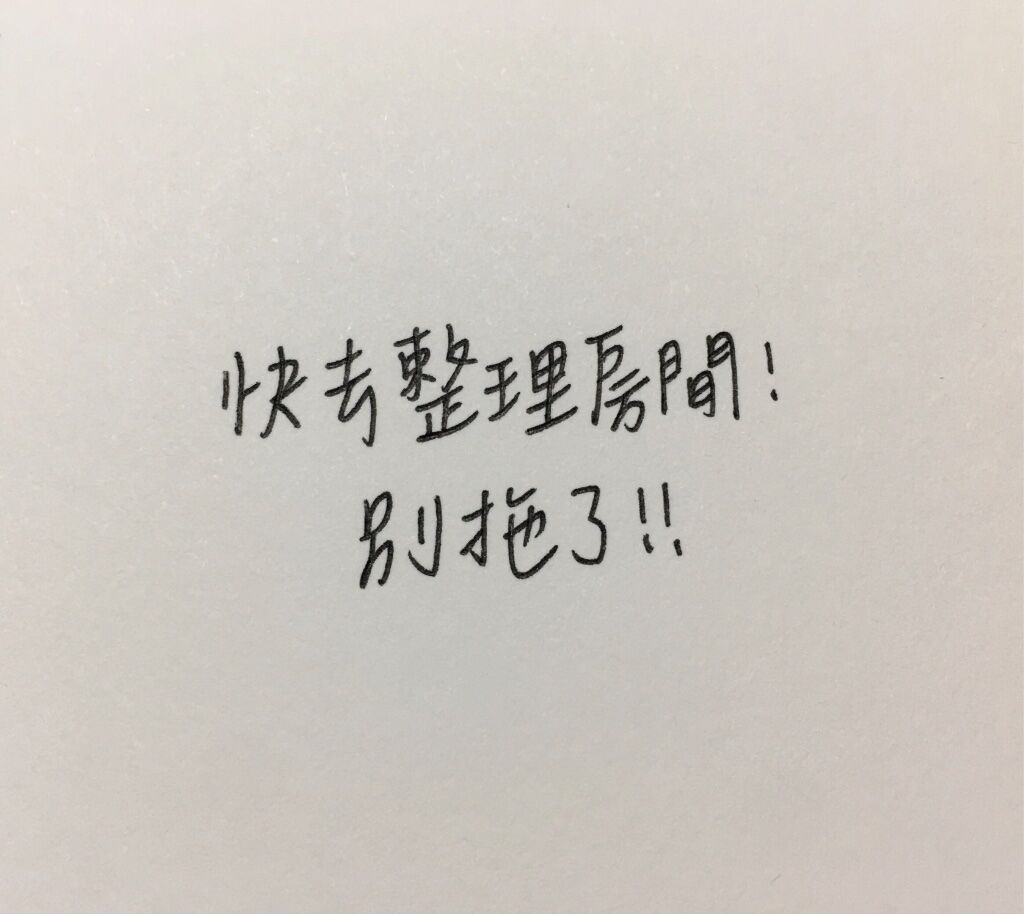 快去整理房間!
別拖了!!